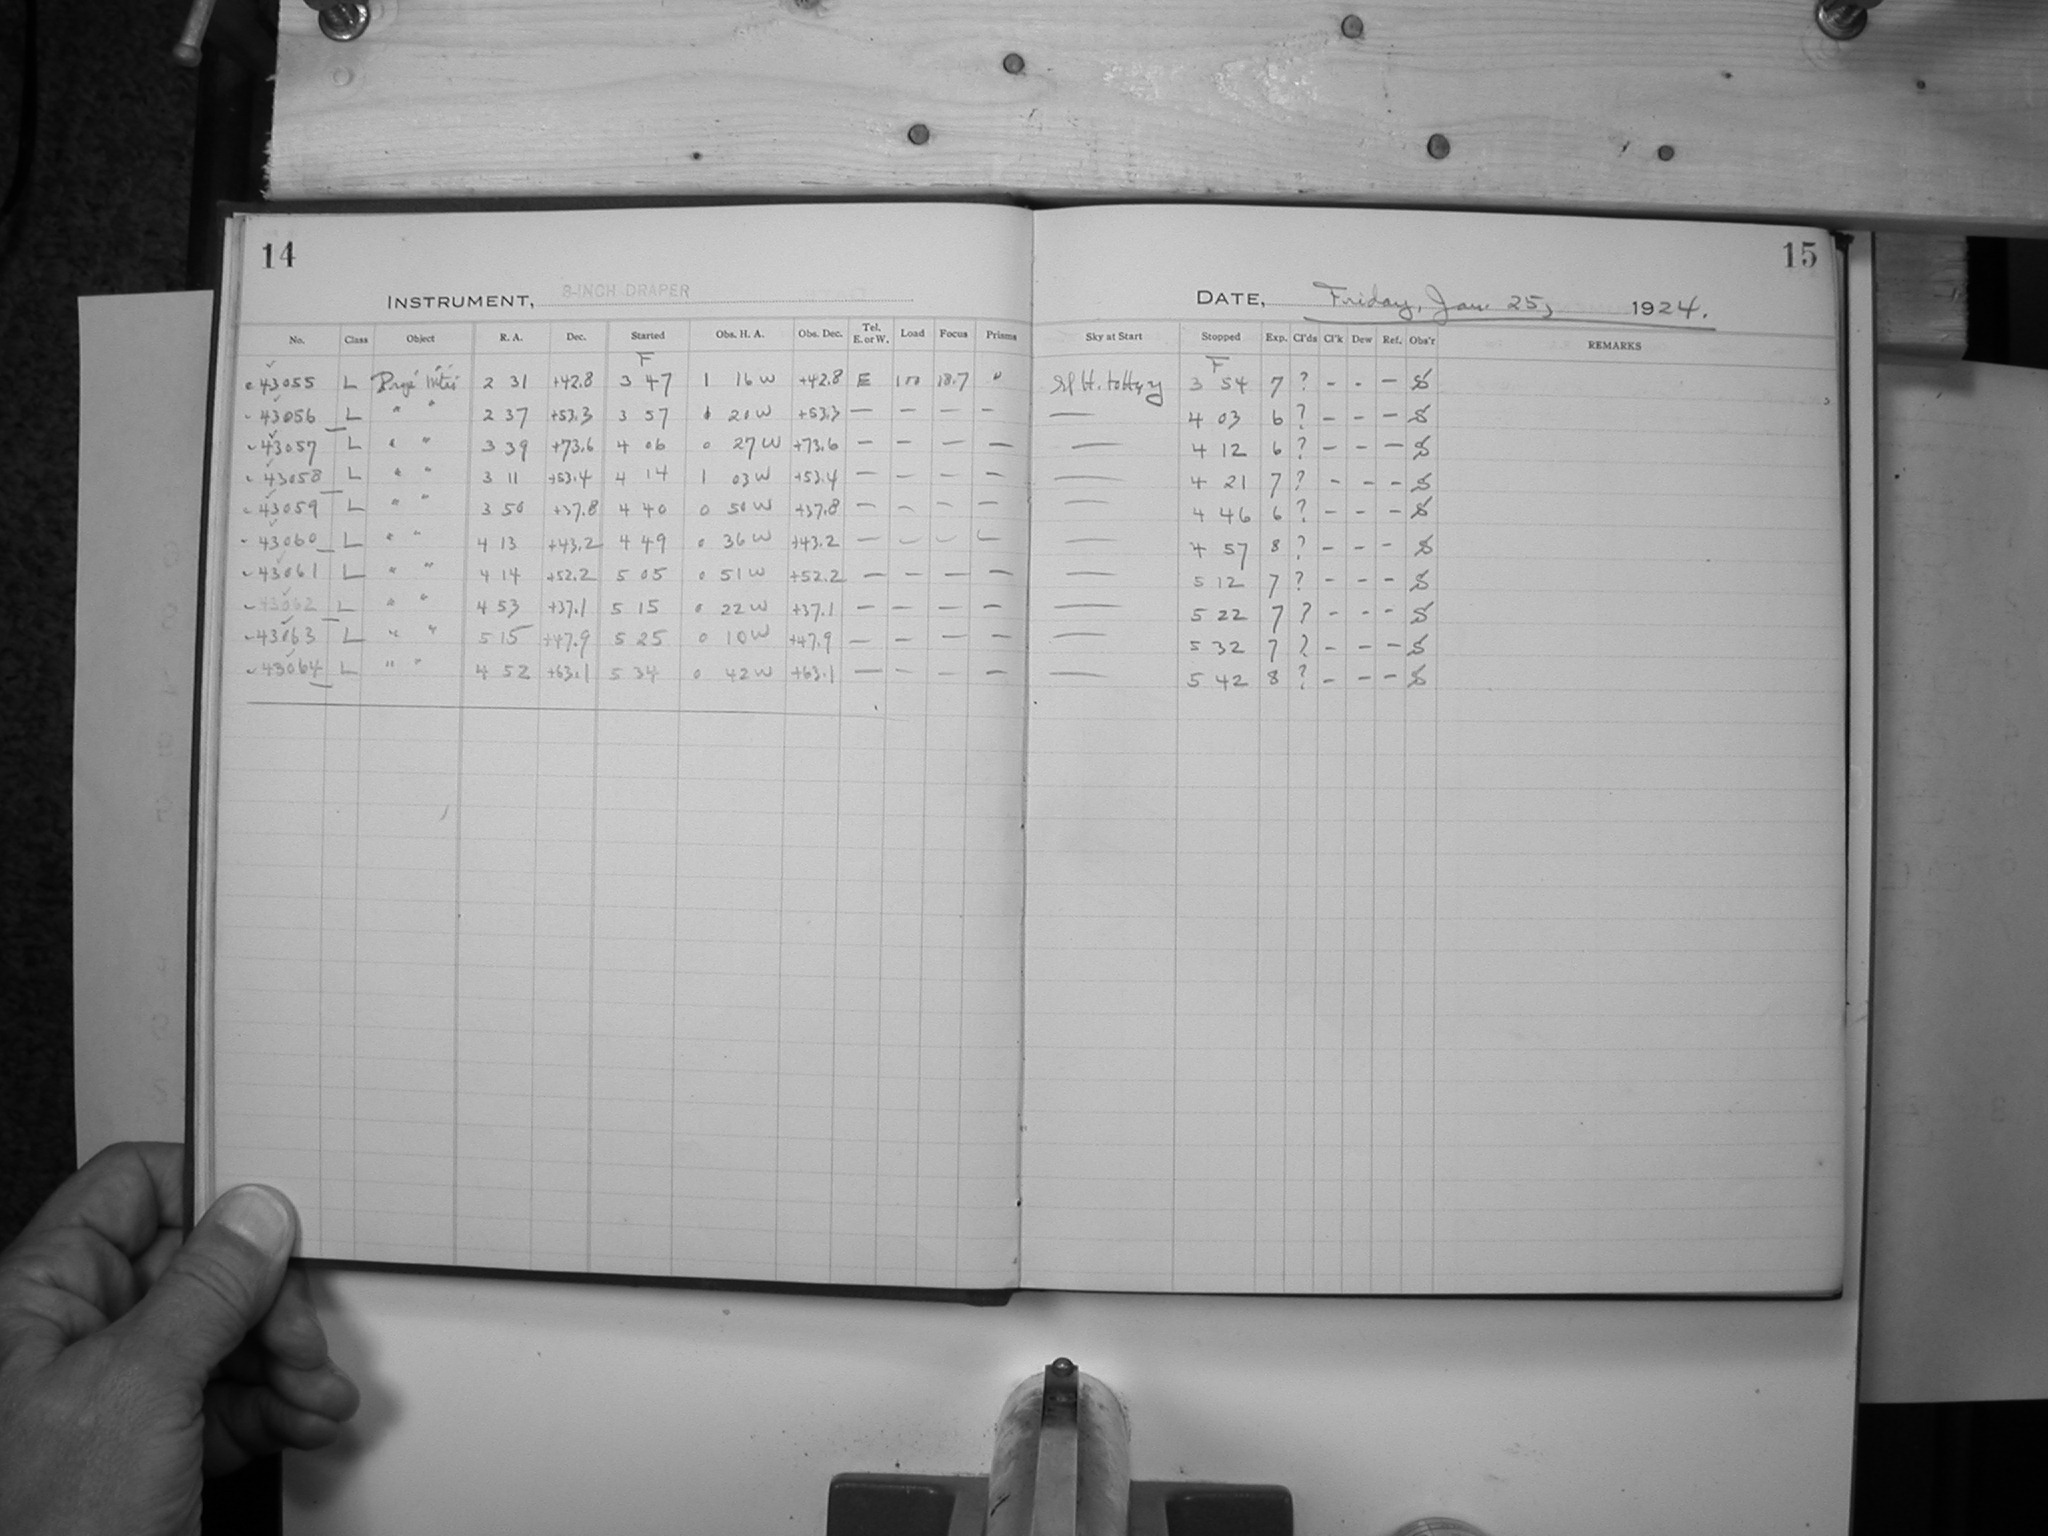 14
15
INSTRUMENT, 8-INCH DRAPER
DATE, Friday, Jan. 25, 1924.
No. Class Object R. A. Dec. Started Obs. H. A. Obs. Dec. Tel. E. or W. Load Focus Prisms Sky at Start Stopped Exp. Cl'ds Cl'k Dew Ref. Obs'r REMARKS
F F
43055 L 2 31 +42.8 3 47 1 16 W +42.8 E 100 18.7 " to Hazy 3 54 7 ? - - - S
43056 L " " 2 37 +53.3 3 57 20 W +53.3 — — — — — 4 03 6 ? - - - S
43057 L " " 3 39 +73.6 4 06 0 27 W +73.6 — — — — — 4 12 6 ? - - - S
43058 L " " 3 11 +53.4 4 14 1 03 W +53.4 — — — — — 4 21 7 ? - - - S
43059 L " " 3 50 +37.8 4 40 0 50 W +37.8 — — — — — 4 46 6 ? - - - S
43060 L " " 4 13 +43.2 4 49 0 36 W +43.2 — — — — — 4 57 8 ? - - - S
43061 L " " 4 14 +52.2 5 05 0 51 W +52.2 — — — — — 5 12 7 ? - - - S
43062 L " " 4 53 +37.1 5 15 0 22 W +37.1 — — — — — 5 22 7 ? - - - S
43063 L " " 5 15 +47.9 5 25 0 10 W +47.9 — — — — — 5 32 7 ? - - - S
43064 L " " 4 52 +63.1 5 34 0 42 W +63.1 — — — — — 5 42 8 ? - - - S